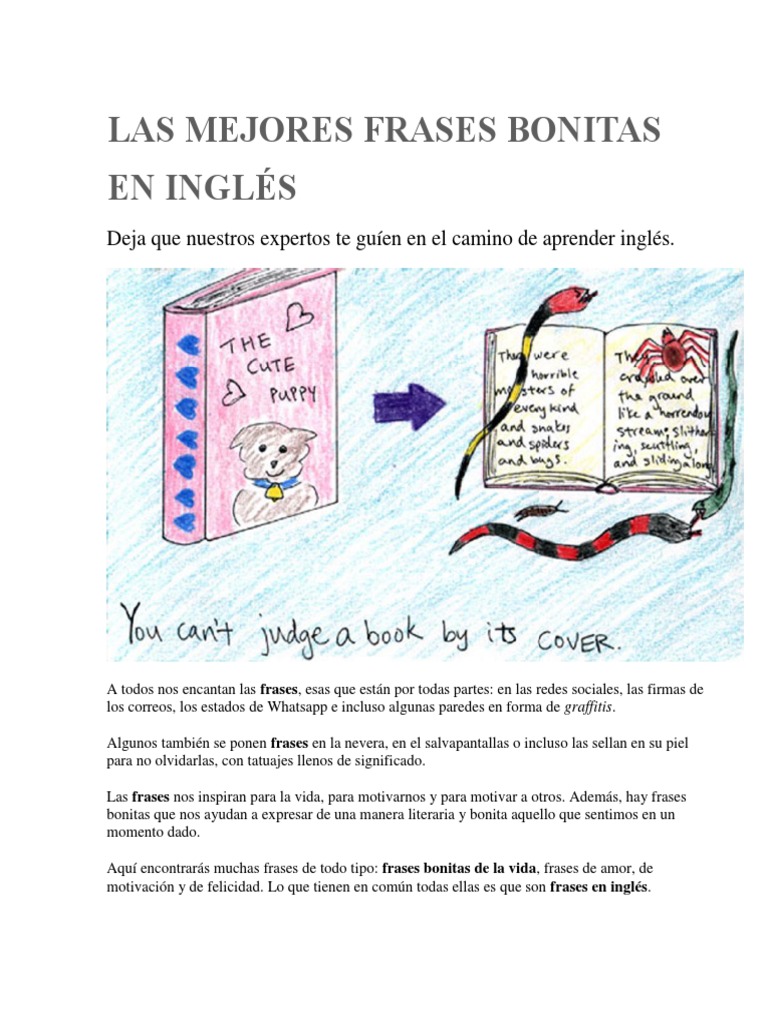 LAS MEJORES FRASES BONITAS
EN INGLÉS
Deja que nuestros expertos te guíen en el camino de aprender inglés.
THE
CUTE
PUPPY
There were
horrible
monsters of
every kind
and snakes
and spiders
and bugs.
They
crawled over
the ground
like a horrendous
stream, slither-
ing, scuttling,
and sliding along
You can't judge a book by its COVER.
A todos nos encantan las frases, esas que están por todas partes: en las redes sociales, las firmas de
los correos, los estados de Whatsapp e incluso algunas paredes en forma de graffitis.
Algunos también se ponen frases en la nevera, en el salvapantallas o incluso las sellan en su piel
para no olvidarlas, con tatuajes llenos de significado.
Las frases nos inspiran para la vida, para motivarnos y para motivar a otros. Además, hay frases
bonitas que nos ayudan a expresar de una manera literaria y bonita aquello que sentimos en un
momento dado.
Aquí encontrarás muchas frases de todo tipo: frases bonitas de la vida, frases de amor, de
motivación y de felicidad. Lo que tienen en común todas ellas es que son frases en inglés.